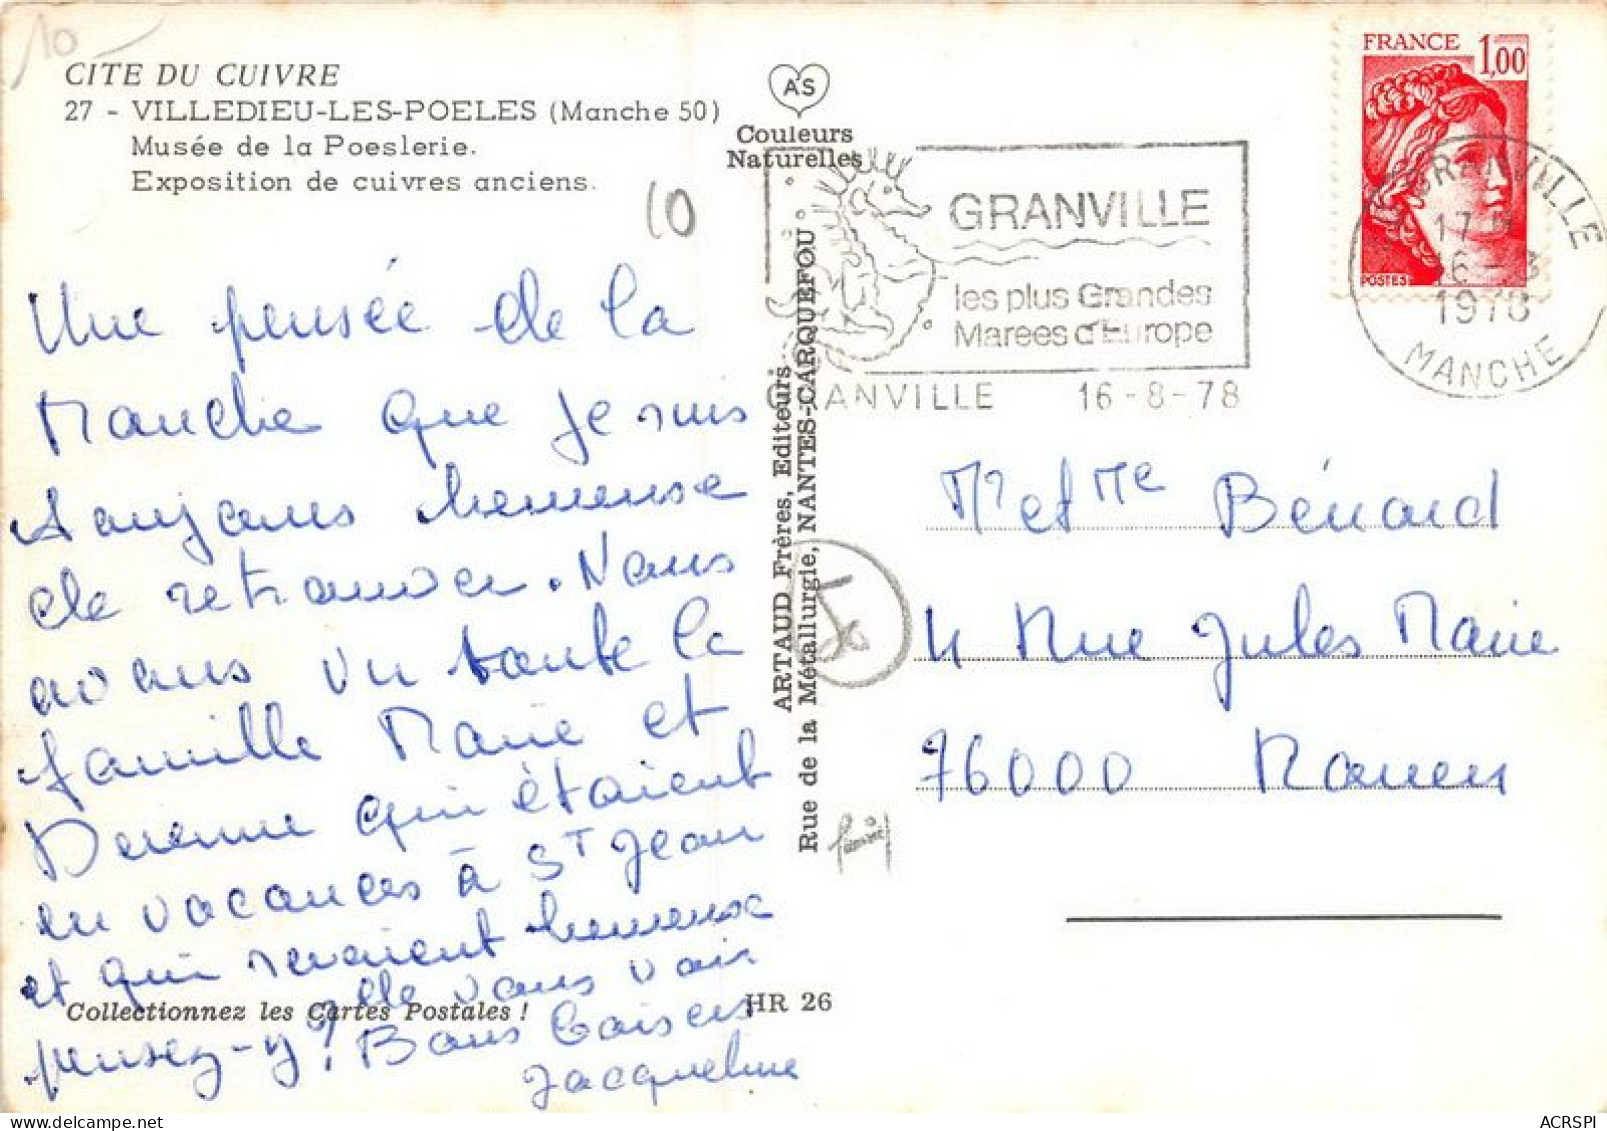 10
CITE DU CUIVRE
27 - VILLEDIEU-LES-POELES (Manche 50)
Musée de la Poeslerie.
Exposition de cuivres anciens.
10
Une pensée de la
Manche que je suis
toujours heureuse
de retrouver. Nous
avons vu toute la
famille Marie et
Derenne qui étaient
en vacances à St Jean
et qui seraient heureuse
de vous voir
pensez-y ? Bons baisers
Jacqueline
Collectionnez les Cartes Postales !
HR 26
A'S
Couleurs
Naturelles
ARTAUD Frères, Editeurs
Rue de la Métallurgie, NANTES-CARQUEFOU
GRANVILLE
les plus Grandes
Marees d'Europe
GRANVILLE 16-8-78
FRANCE 1,00
POSTES
GRANVILLE
17 H
16 - 8
1978
MANCHE
Mr et Mme Bénard
4 Rue Jules Marie
76000 Rouen
ACRSPI